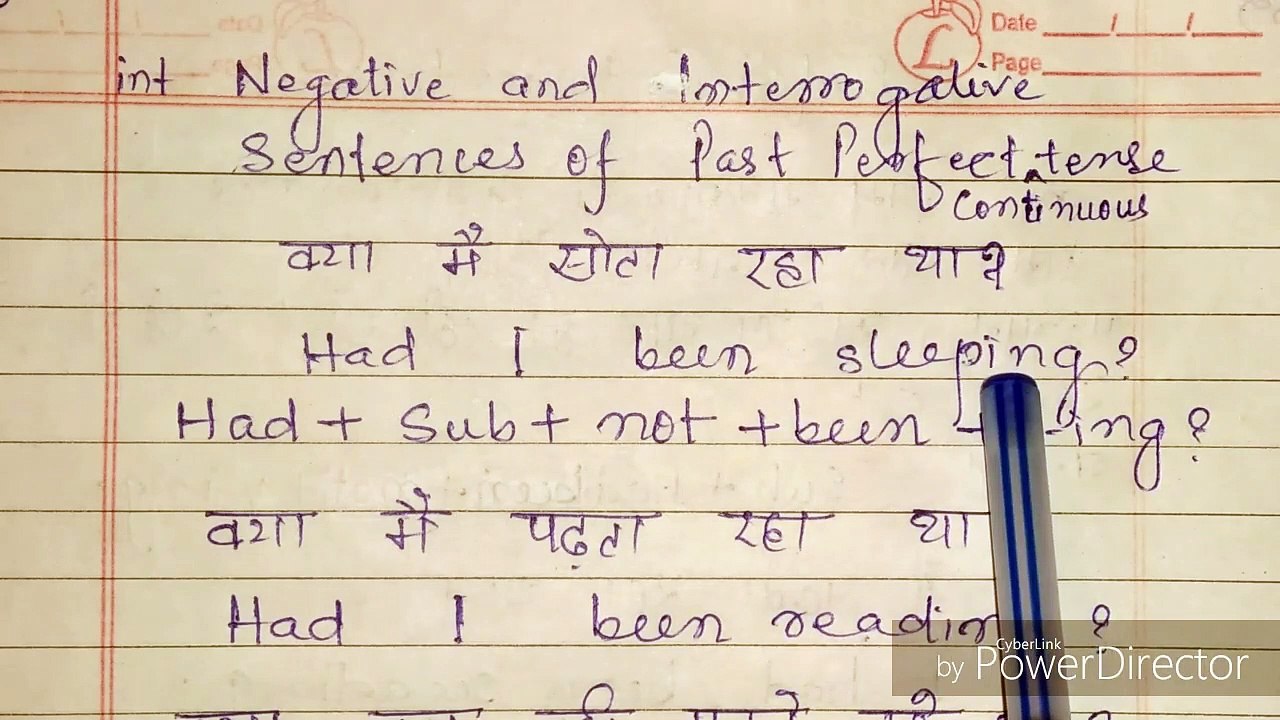 Date / / /
Page
int Negative and Interrogative
Sentences of Past Perfect tense
Continuous
क्या मै सोता रहा था?
Had I been sleeping?
Had + Sub + not + been + ing?
क्या मै पढ़ता रहा था
Had I been reading ?
CyberLink
by PowerDirector